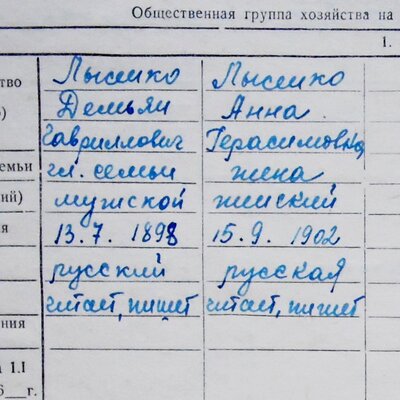 Общественная группа хозяйства на
1.
ство Лысенко Лысенко
Демьян Анна
Гавриллович Герасимовна
емьи гл. семьи жена
ий) мужской женский
ия 13.7. 1898 15.9. 1902
русский русская
читает, пишет читает, пишет
ения
1.I
6__г.